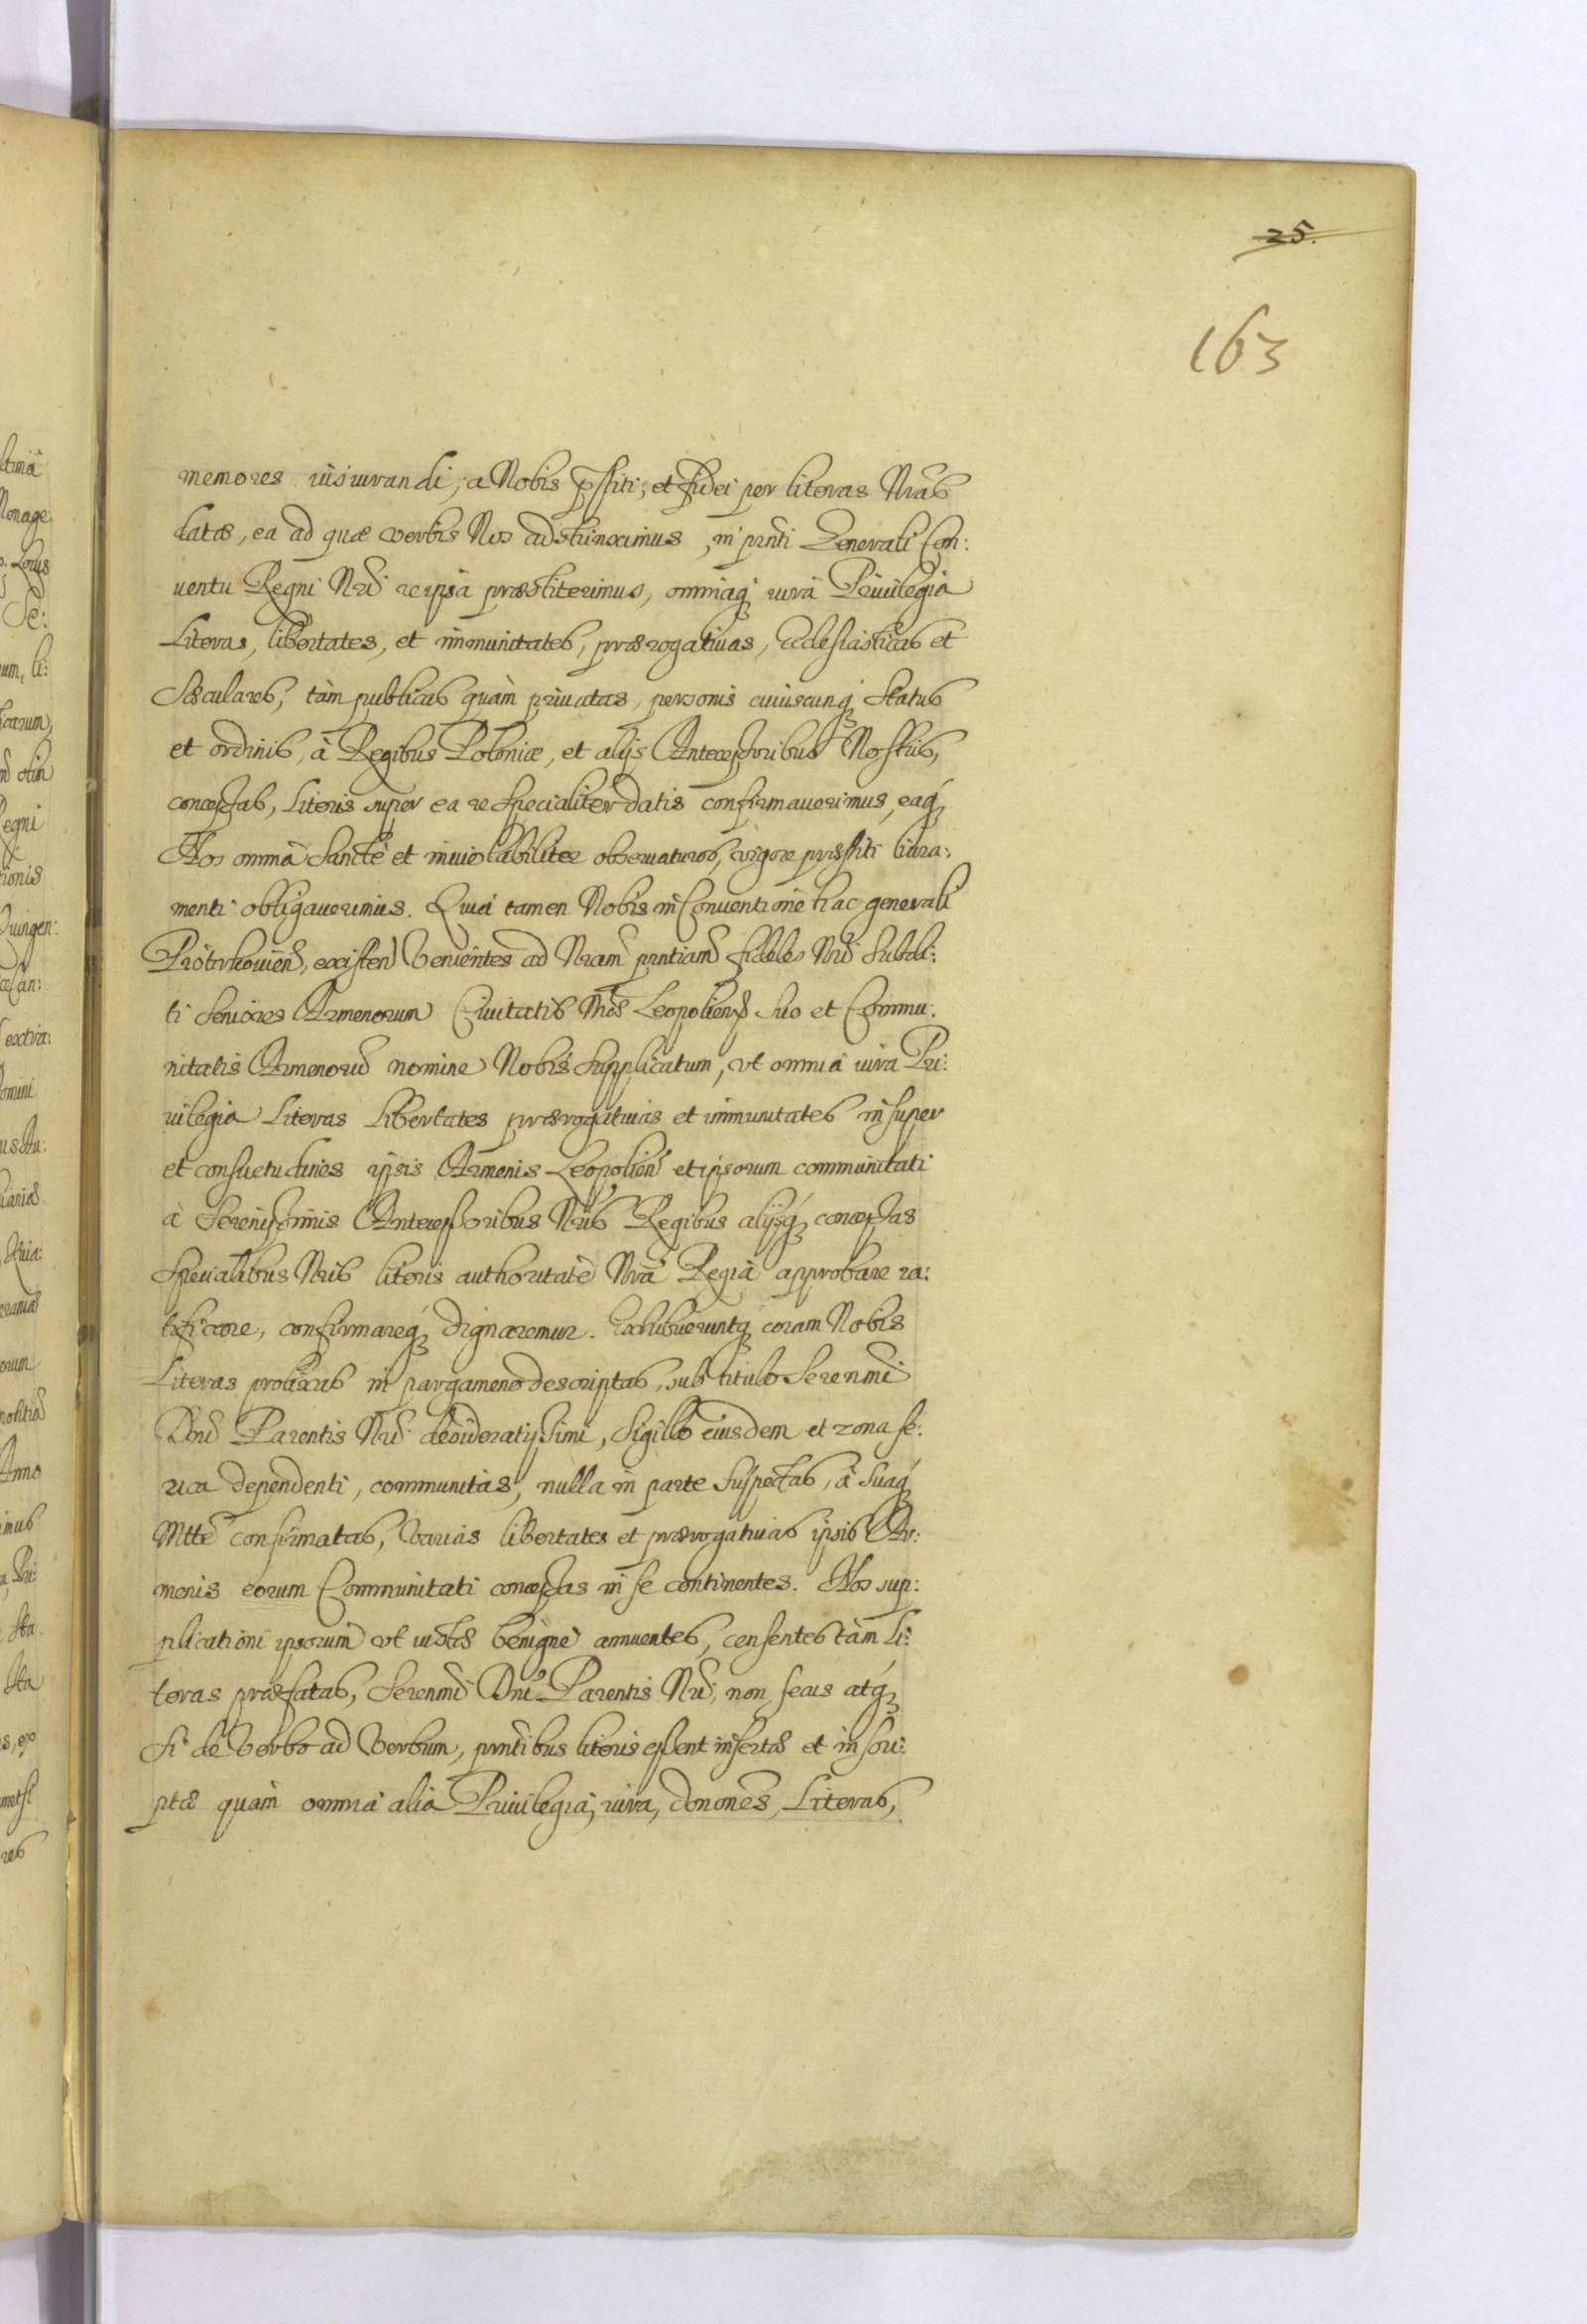 25.
163
memores iusiurandi, a Nobis pstiti, et fidei per literas Nras
datae, ea ad quae verbis Nos adstrinximus, in pnti Generali Con:
uentu Regni Nri reipsa praestiterimus, omniaq; iura Priuilegia
Literas, libertates, et immunitates, praerogatiuas, Ecclesiasticas et
Saeculares, tàm publicas quàm priuatas, personis cuiuscunq; Status
et ordinis, à Regibus Poloniae, et alijs Antecessoribus Nostris,
concessas, Literis super ea re specialiter datis confirmauerimus, eaq;
Nos omnia Sanctè et inuiolabiliter obseruaturos, vigore praestiti Iura:
menti obligauerimus. Quia tamen Nobis in Conuentione hac generali
Piotrkouien, existen Venientes ad Nram pntiam fideles Nri Subdi:
ti Seniores Armenorum Ciuitatis Nrae Leopolien Suo et Commu:
nitatis Armenorum nomine Nobis Supplicatum, vt omnia iura Pri:
uilegia Literas Libertates praerogatiuas et immunitates insuper
et consuetudines ipsis Armenis Leopolien et ipsorum communitati
à Serenissimis Antecessoribus Nris Regibus alijsq; concessas
Specialibus Nris literis authoritate Nra Regia approbare ra:
tificare, confirmareq; dignaremur. Exhibueruntq; coram Nobis
Literas prolixas in pargameno descriptas, sub titulo Serenmi
Dni Parentis Nri desideratissimi, Sigillo eiusdem et zona se:
rica dependenti, communitas, nulla in parte Suspectas, à Suaq;
Mtte confirmatas, Varias libertates et praerogatiuas ipsis Ar:
menis eorum Communitati concessas in se continentes. Nos sup:
plicationi ipsorum vt iustae benigne annuentes, censentes tàm Li:
teras praefatas, Serenmi Dni Parentis Nri, non secus atq;
si de Verbo ad Verbum, pntibus literis essent insertae et inscri:
ptae quàm omnia alia Priuilegia, iura, donones, Literas,